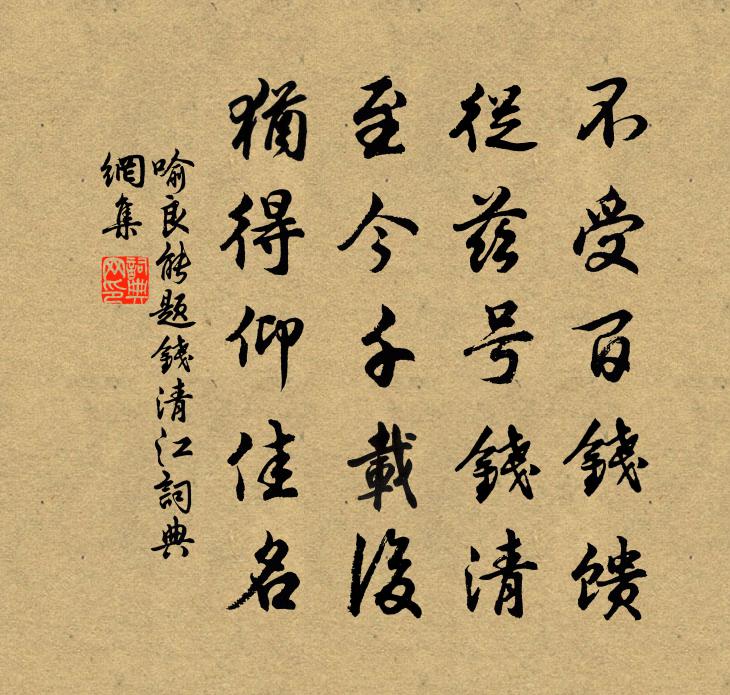 不受百錢馈
從茲号錢清
至今千載後
猶得仰佳名
喻良能题錢清江詞典
網集
詞典
网印